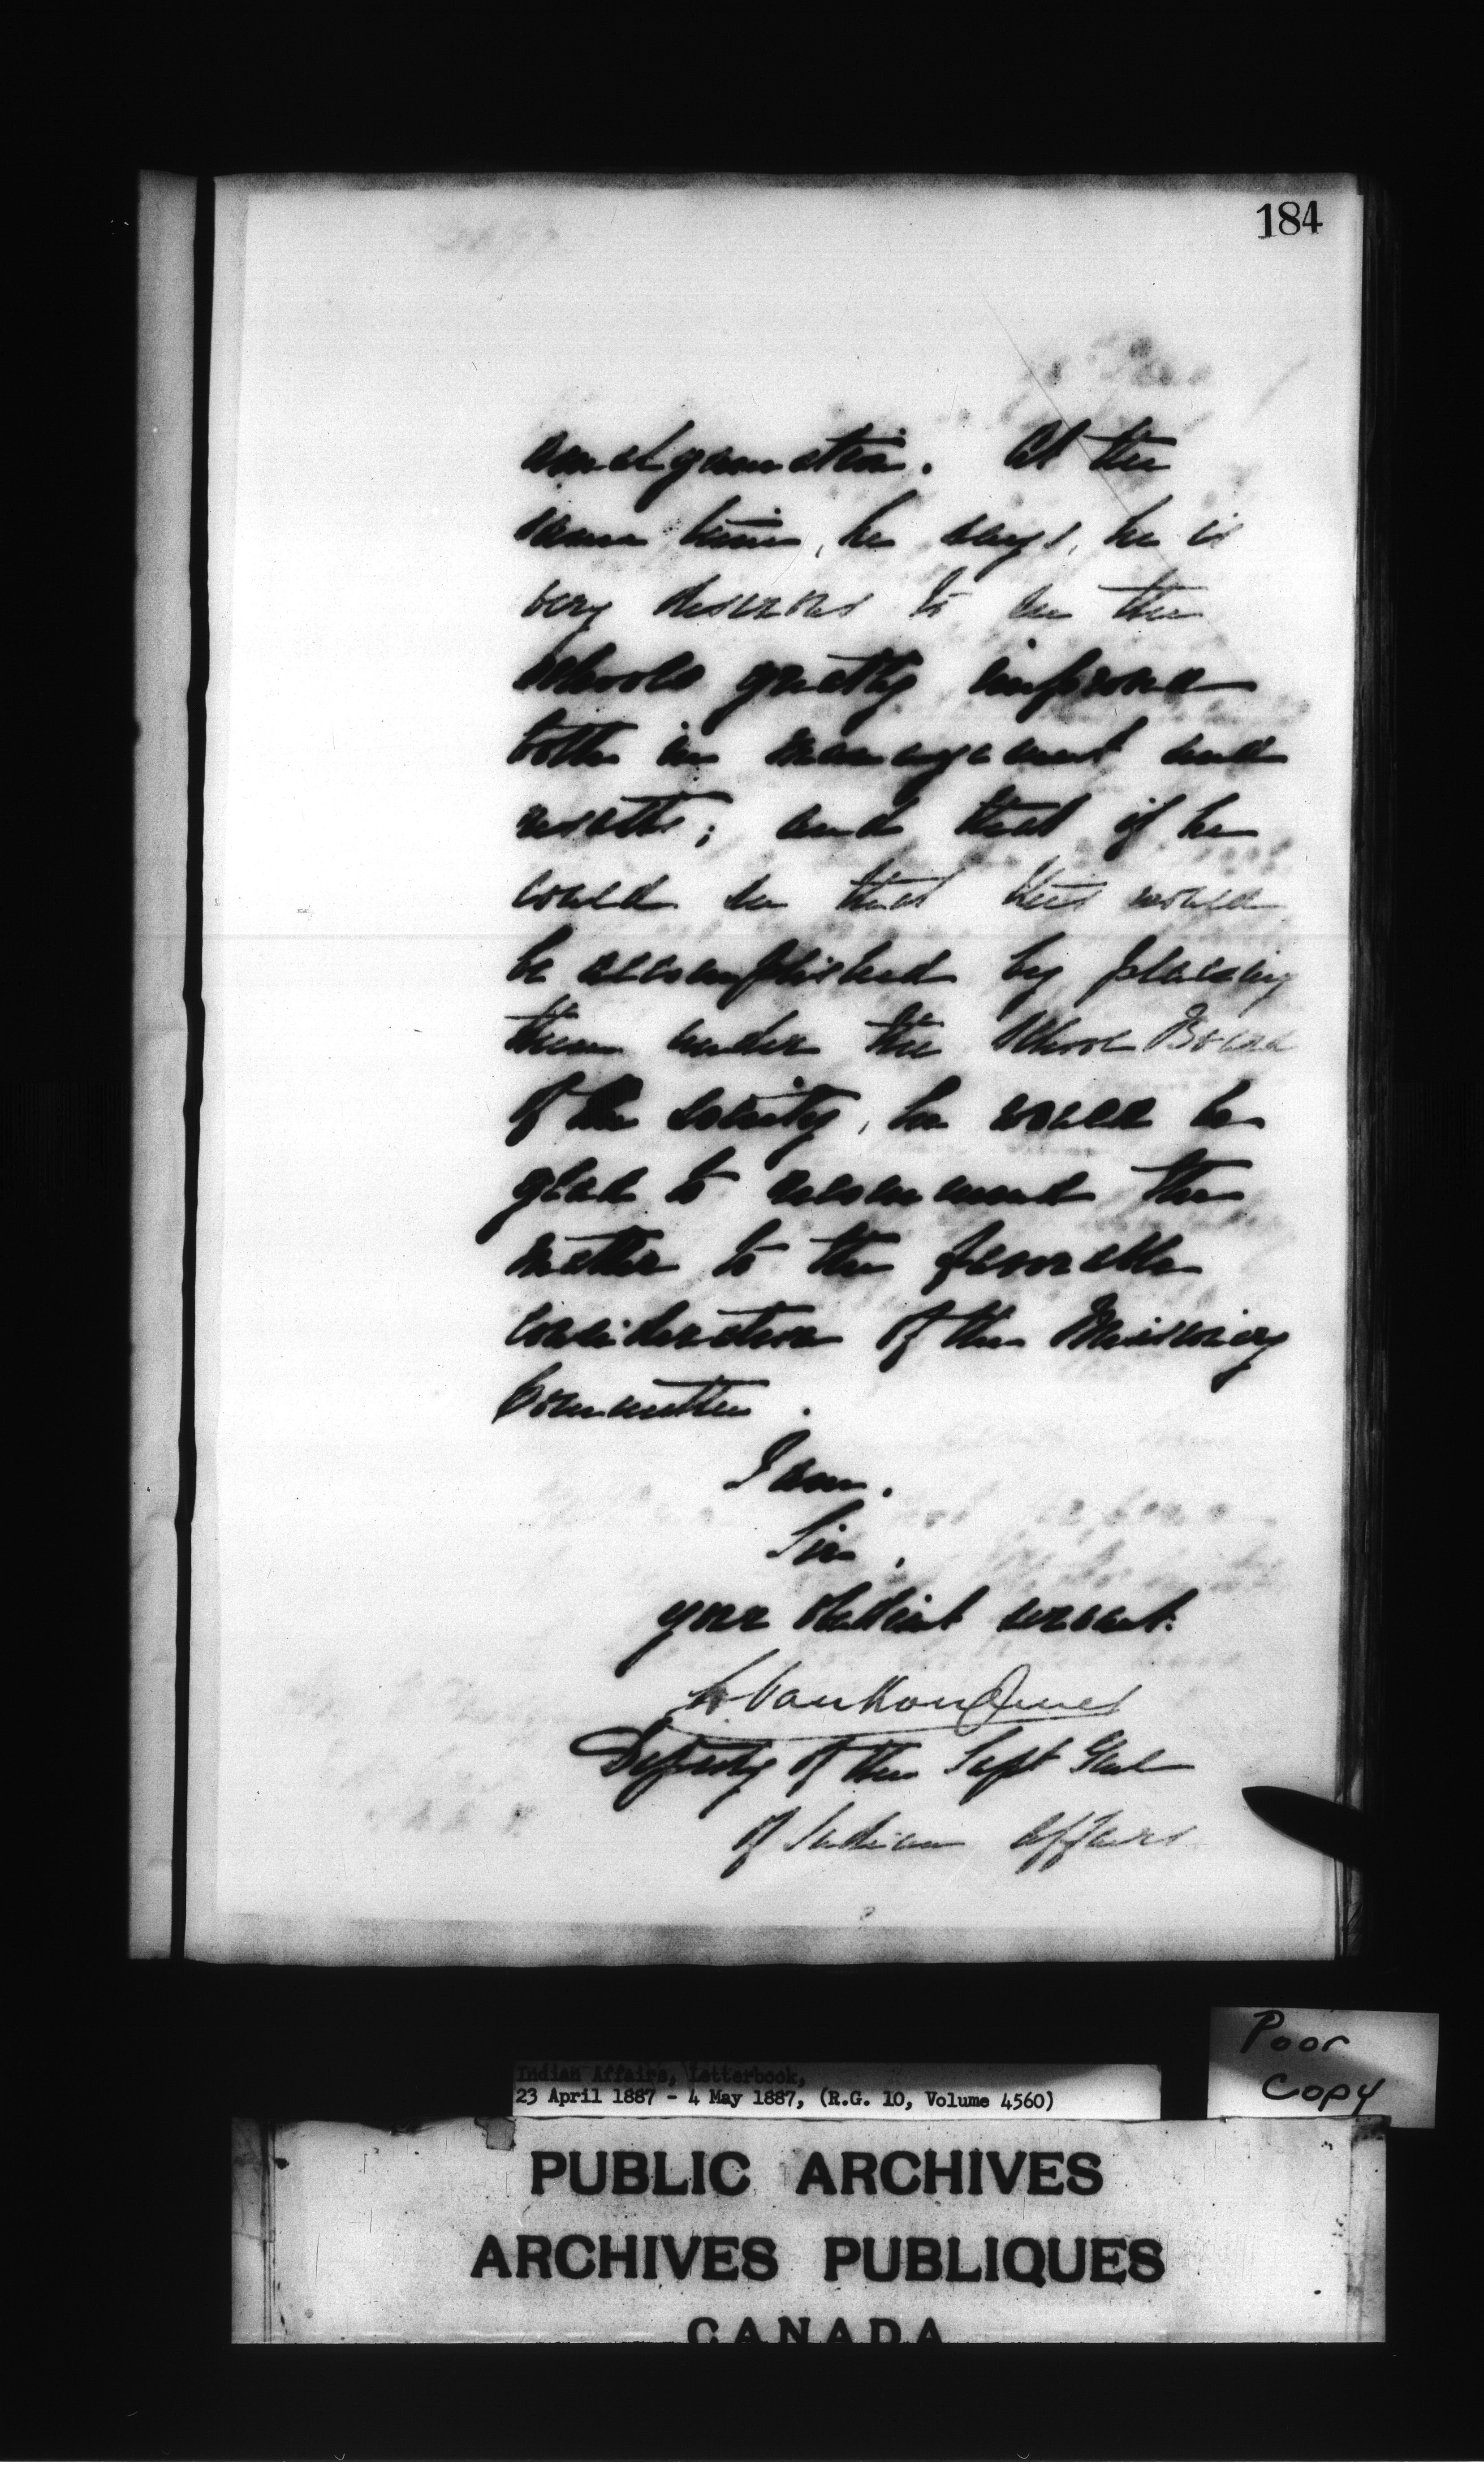 184
amalgamation. At the
same time, he says, he is
very desirous to see the
schools greatly improved
both in management and
results; and that if he
could see that this would
be accomplished by placing
them under the School Board
of the Society, he would be
glad to recommend the
matter to the favorable
consideration of the Missionary
Committee.
I am,
Sir,
your obedient servant.
L. Vankoughnet
Deputy of the Supt Genl
of Indian Affairs
Poor
Copy
Indian Affairs, Letterbook,
23 April 1887 - 4 May 1887, (R.G. 10, Volume 4560)
PUBLIC ARCHIVES
ARCHIVES PUBLIQUES
CANADA